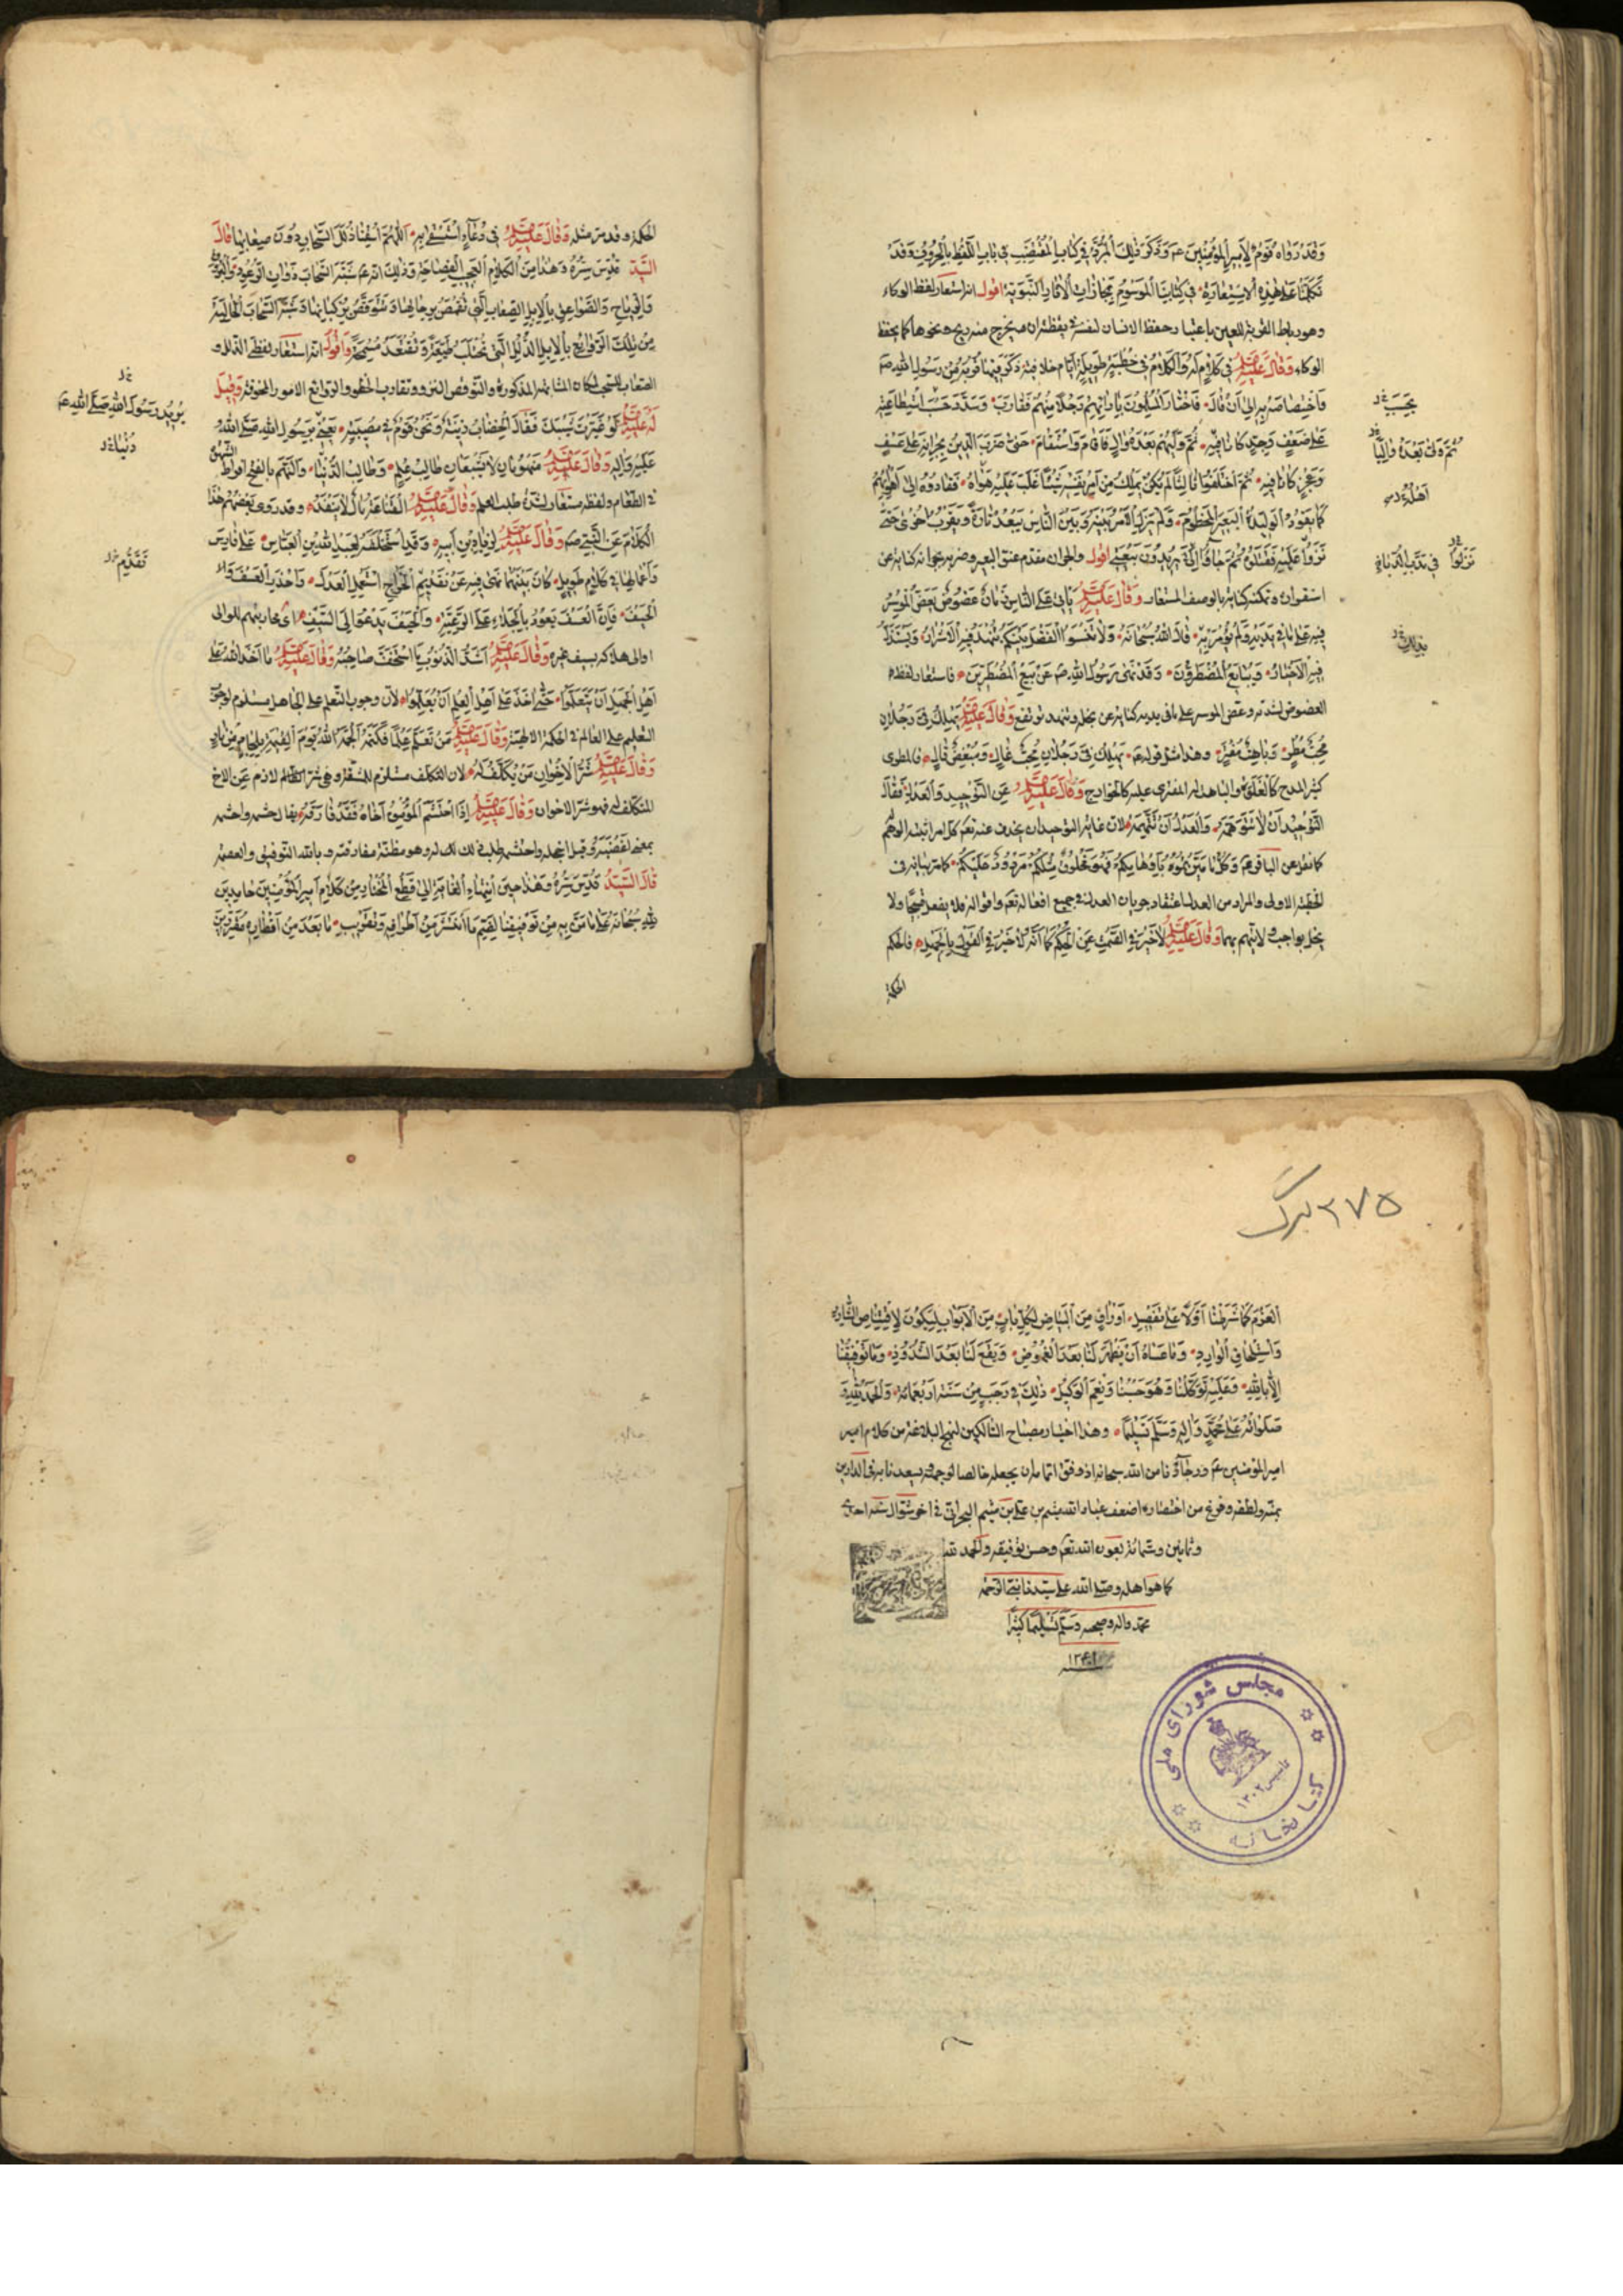 وَقَدْ رَوَاهُ قَوْمٌ لِأَمِيرِ الْمُؤْمِنِينَ عم وَذَكَرَ ذٰلِكَ الْمُبَرَّدُ فِي كِتَابِ الْمُقْتَضَبِ فِي بَابِ اللَّفْظِ بِالْحُرُوفِ وَقَدْ
تَكَلَّمْنَا عَلَى هٰذِهِ الْاِسْتِعَارَةِ فِي كِتَابِنَا الْمَوْسُومِ بِمَجَازَاتِ الْآثَارِ النَّبَوِيَّةِ اقول استعار لفظ الوكاء
وهو رباط القربة للعين باعتبار حفظ الانسان لنفسه في يقظته ان يخرج منه ريح ونحوها كما يحفظ
الوكاء وَقَالَ عَلَيْهِ السَّلَامُ فِي كَلَامٍ لَهُ وَالْكَلَامُ فِي خُطْبَةٍ طَوِيلَةٍ ايام خلافته ذَكَرَ فِيهَا قُرْبَهُ مِنْ رَسُولِ اللهِ صم
وَاخْتِصَاصَهُ بِهِ اِلَى اَنْ قَالَ فَاخْتَارَ الْمُسْلِمُونَ بِآرَائِهِمْ رَجُلًا مِنْهُمْ فَقَارَبَ وَسَدَّدَ حَسَبَ اسْتِطَاعَتِهِ
عَلَى ضَعْفٍ وَحَدٍّ كَانَا فِيهِ ثُمَّ وَلِيَهُمْ بَعْدَهُ وَالٍ فَاَقَامَ وَاسْتَقَامَ حَتَّى ضَرَبَ الدِّينُ بِجِرَانِهِ عَلَى عَسْفٍ
وَعَجْزٍ كَانَا فِيهِ ثُمَّ اخْتَلَفُوا ثَالِثًا لَمْ يَكُنْ يَمْلِكُ مِنْ اَمْرِ نَفْسِهِ شَيْئًا غَلَبَ عَلَيْهِ هَوَاهُ فَقَادُوهُ اِلَى اَهْوَائِهِمْ
كَمَا يَقُودُ الْوَلِيدَةُ الْبَعِيرَ الْمَخْطُومَ وَلَمْ يَزَلِ الْاَمْرُ بَيْنَهُ وَبَيْنَ النَّاسِ يَبْعُدُ تَارَةً وَيَقْرُبُ اُخْرَى حَتَّى
نَزَوْا عَلَيْهِ فَقَتَلُوهُ ثُمَّ جَاؤُا اِلَيَّ يُرِيدُونَ بَيْعَتِي اقول والجران مقدم عنق البعير وضربه بجرانه كناية عن
استقراره وتمكنه كناية بالوصف المستعار وَقَالَ عَلَيْهِ السَّلَامُ يَأْتِي عَلَى النَّاسِ زَمَانٌ عَضُوضٌ يَعَضُّ الْمُوسِرُ
فِيهِ عَلَى مَا فِي يَدَيْهِ وَلَمْ يُؤْمَرْ بِهِ قَالَ اللهُ سُبْحَانَهُ وَلَا تَنْسَوُا الْفَضْلَ بَيْنَكُمْ تَنْهَدُ فِيهِ الْاَشْرَارُ وَيُسْتَذَلُّ
فِيهِ الْاَخْيَارُ وَيُبَايِعُ الْمُضْطَرُّونَ وَقَدْ نَهَى رَسُولُ اللهِ صم عَنْ بَيْعِ الْمُضْطَرِّينَ فاستعار لفظ
العضوض لشدته وعض الموسر على ما في يديه كناية عن بخله وتنهد ترتفع وَقَالَ عَلَيْهِ السَّلَامُ يَهْلِكُ فِيَّ رَجُلَانِ
مُحِبٌّ مُطْرٍ وَبَاهِتٌ مُفْتَرٍ وهذا مثل قوله عم يَهْلِكُ فِيَّ رَجُلَانِ مُحِبٌّ غَالٍ وَمُبْغِضٌ قَالٍ فالمطرى
كثير المدح كالغلاة والباهت له المفترى عليه كالخوارج وَقَالَ عَلَيْهِ السَّلَامُ عَنِ التَّوْحِيدِ وَالْعَدْلِ فَقَالَ
التَّوْحِيدُ اَنْ لَا تَتَوَهَّمَهُ وَالْعَدْلُ اَنْ لَا تَتَّهِمَهُ لان غاية التوحيد ان يحذف عنه تعم كل امر اثبته الوهم
كما نقل عن الباقر عم وَكُلُّ مَا مَيَّزْتُمُوهُ بِاَوْهَامِكُمْ فَهُوَ مَخْلُوقٌ مِثْلُكُمْ مَرْدُودٌ عَلَيْكُمْ كما مر بيانه في
الخطبة الاولى والمراد من العدل اعتقاد جريان العدل في جميع افعاله تعم واقواله فلا يفعل قبيحا ولا
يخل بواجب ولا يتهم بهما وَقَالَ عَلَيْهِ السَّلَامُ لَا خَيْرَ فِي الصَّمْتِ عَنِ الْحُكْمِ كَمَا اَنَّهُ لَا خَيْرَ فِي الْقَوْلِ بِالْجَهْلِ فالحكم
الحكمة
بِحَسَبِ خ
ثُمَّ وَلِيَ بَعْدَهُ وَالِيًا
الحكمة وقد مر مثله وَقَالَ عَلَيْهِ السَّلَامُ فِي دُعَاءٍ اسْتَسْقَى بِهِ اَللّٰهُمَّ اسْقِنَا ذُلُلَ السَّحَابِ دُونَ صِعَابِهَا قَالَ
السَّيِّدُ قُدِّسَ سِرُّهُ وَهٰذَا مِنَ الْكَلَامِ الْعَجِيبِ الْفَصَاحَةِ وَذٰلِكَ انه عم شَبَّهَ السَّحَابَ ذَوَاتِ الرُّعُودِ وَالْبَوَارِقِ
وَالرِّيَاحِ وَالصَّوَاعِقِ بِالْاِبِلِ الصِّعَابِ الَّتِي تَقْمُصُ بِرِحَالِهَا وَتَتَوَقَّصُ بِرُكْبَانِهَا وَشَبَّهَ السَّحَابَ الْخَالِيَةَ
مِنْ تِلْكَ الرَّوَائِعِ بِالْاِبِلِ الذُّلُلِ الَّتِي تُحْتَلَبُ طَيِّعَةً وَتُقْتَعَدُ مُسْمِحَةً وَاَقُولُ انه استعار لفظي الذلل و
الصعاب للسحب لمكان المشابهة المذكورة والتوقص النزو وتقارب الخطو والروائع الامور المخوفة وَقِيلَ
لَهُ عَلَيْهِ السَّلَامُ لَوْ غَيَّرْتَ شَيْبَكَ فَقَالَ الْخِضَابُ زِينَةٌ وَنَحْنُ قَوْمٌ فِي مُصِيبَةٍ يَعْنِي بِرَسُولِ اللهِ صَلَّى اللهُ
عَلَيْهِ وَآلِهِ وَقَالَ عَلَيْهِ السَّلَامُ مَنْهُومَانِ لَا يَشْبَعَانِ طَالِبُ عِلْمٍ وَطَالِبُ الدُّنْيَا وَالنَّهَم بالفتح افراط الشهوة
في الطعام ولفظه مستعار لشدة طلب العلم وَقَالَ عَلَيْهِ السَّلَامُ الْقَنَاعَةُ مَالٌ لَا يَنْفَدُ وَقَدْ رَوَى بَعْضُهُمْ هٰذَا
الْكَلَامَ عَنِ النَّبِيِّ صم وَقَالَ عَلَيْهِ السَّلَامُ لِزِيَادِ بْنِ اَبِيهِ وَقَدِ اسْتَخْلَفَهُ لِعَبْدِ اللهِ بْنِ الْعَبَّاسِ عَلَى فَارِسَ
وَاَعْمَالِهَا فِي كَلَامٍ طَوِيلٍ كَانَ بَيْنَهُمَا نَهَى فِيهِ عَنْ تَقْدِيمِ الْخَرَاجِ اسْتَعْمِلِ الْعَدْلَ وَاحْذَرِ الْعَسْفَ وَ
الْحَيْفَ فَاِنَّ الْعَسْفَ يَعُودُ بِالْجَلَاءِ عَلَى الرَّعِيَّةِ وَالْحَيْفَ يَدْعُو اِلَى السَّيْفِ اى محاربتهم للوالى
او الى هلاكه بسيف غيره وَقَالَ عَلَيْهِ السَّلَامُ اَشَدُّ الذُّنُوبِ مَا اسْتَخَفَّ صَاحِبُهُ وَقَالَ عَلَيْهِ السَّلَامُ مَا اَخَذَ اللهُ عَلَى
اَهْلِ الْجَهْلِ اَنْ يَتَعَلَّمُوا حَتَّى اَخَذَ عَلَى اَهْلِ الْعِلْمِ اَنْ يُعَلِّمُوا لان وجوب التعلم على الجاهل مستلزم لوجوب
التعليم على العالم في الحكمة الالهية وَقَالَ عَلَيْهِ السَّلَامُ مَنْ تَعَلَّمَ عِلْمًا فَكَتَمَهُ اَلْجَمَهُ اللهُ يَوْمَ الْقِيٰمَةِ بِلِجَامٍ مِنْ نَارٍ
وَقَالَ عَلَيْهِ السَّلَامُ شَرُّ الْاِخْوَانِ مَنْ يُتَكَلَّفُ لَهُ لان التكلف مستلزم للمشقة وهي شر لازم عن الاخ
المتكلف له فهو شر الاخوان وَقَالَ عَلَيْهِ السَّلَامُ اِذَا احْتَشَمَ الْمُؤْمِنُ اَخَاهُ فَقَدْ فَارَقَهُ يقال حشمه واحشمه
بمعنى اغضبه وقيل اخجله واحتشمه طلب ذلك له وهو مظنة مفارقته وبالله التوفيق والعصمة
قَالَ السَّيِّدُ قُدِّسَ سِرُّهُ وَهٰذَا حِينَ انْتِهَاءِ الْغَايَةِ اِلَى قَطْعِ الْمُخْتَارِ مِنْ كَلَامِ اَمِيرِ الْمُؤْمِنِينَ حَامِدِينَ
لِلّٰهِ سُبْحَانَهُ عَلَى مَا مَنَّ بِهِ مِنْ تَوْفِيقِنَا لِضَمِّ مَا انْتَشَرَ مِنْ اَطْرَافِهِ وَتَقْرِيبِ مَا بَعُدَ مِنْ اَقْطَارِهِ مُقَرِّرِينَ
يُرِيدُ رَسُولَ اللهِ صَلَّى اللهُ عم
دُنْيَا خ
تَقَدُّمِ خ
٢٧٥ برگ
الْعَزْمَ كَمَا شَرَطْنَا اَوَّلًا عَلَى تَفْضِيلِ اَوْرَاقٍ مِنَ الْبَيَاضِ لِكُلِّ بَابٍ مِنَ الْاَبْوَابِ لِيَكُونَ لِاقْتِنَاصِ الشَّارِدِ
وَاسْتِلْحَاقِ الْوَارِدِ وَمَا عَسَاهُ اَنْ يَظْهَرَ لَنَا بَعْدَ الْغُمُوضِ وَيَقَعَ لَنَا بَعْدَ الشُّذُوذِ وَمَا تَوْفِيقُنَا
اِلَّا بِاللهِ وَعَلَيْهِ تَوَكَّلْنَا وَهُوَ حَسْبُنَا وَنِعْمَ الْوَكِيلُ ذٰلِكَ فِي رَجَبٍ مِنْ سَنَةِ اَرْبَعِمِائَةٍ وَالْحَمْدُ لِلّٰهِ وَ
صَلَوَاتُهُ عَلَى مُحَمَّدٍ وَآلِهِ وَسَلَّمَ تَسْلِيمًا وهذا اختيار مصباح السالكين لنهج البلاغة من كلام امير
امير المؤمنين عم ورجاؤنا من الله سبحانه اذ وفق اتمامه ان يجعله خالصا لوجهه ويسعدنا به في الدارين
بمنه ولطفه وفرغ من اختصاره اضعف عباد الله ميثم بن علي بن ميثم البحراني في اخر شوال سنة احدى
وثمانين وستمائة بعون الله تعم وحسن توفيقه والحمد لله
كما هو اهله وصلى الله على سيدنا نبي الرحمة
محمد واله وصحبه وسلم تسليما كثيرا
كتابخانه مجلس شورای ملی
تأسيس ١٣٠٢